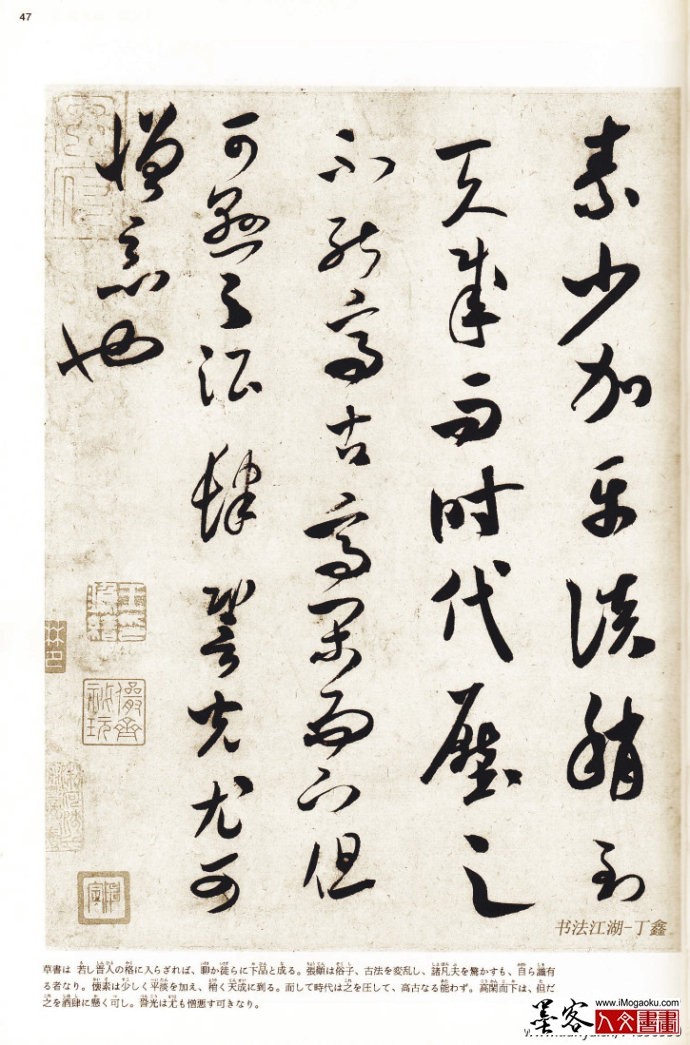 47
素少加平淡稍到
天成而時代壓之
不能高古高閑而下但
可懸之酒肆䛒光尤可
憎惡也
书法江湖-丁鑫
草書は若し晋人の格に入らざれば、聊か徒らに下品と成る。張顛は俗子、古法を変乱し、諸凡夫を驚かすも、自ら識有
る者なり。懐素は少しく平淡を加え、稍く天成に到る。而して時代は之を圧して、高古なる能わず。高閑而下は、但だ
之を酒肆に懸く可し。䛒光は尤も憎悪す可きなり。
www.iMogaoku.com
墨客 人文書畫